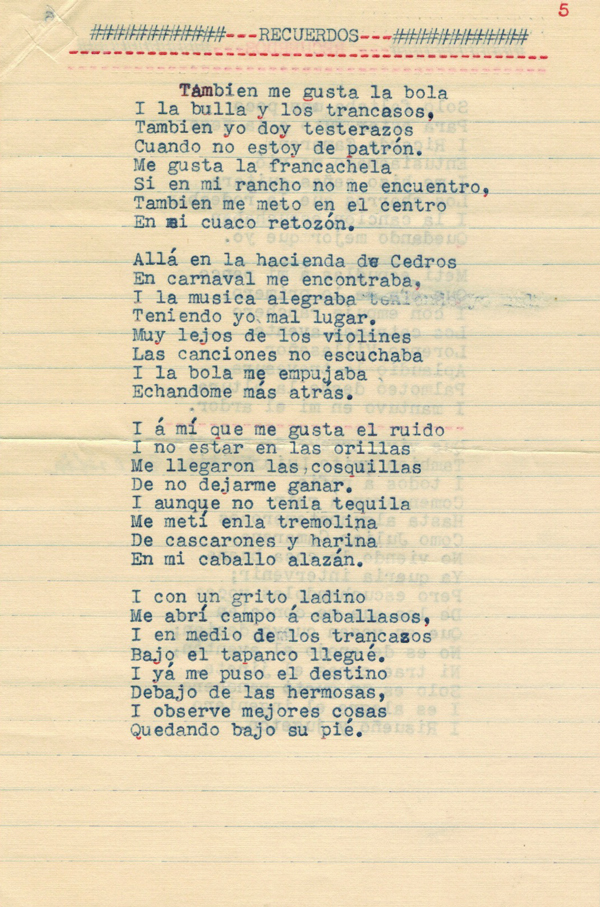 5
############---RECUERDOS---############
Tambien me gusta la bola
I la bulla y los trancasos,
Tambien yo doy testerazos
Cuando no estoy de patrón.
Me gusta la francachela
Si en mi rancho no me encuentro,
Tambien me meto en el centro
En mi cuaco retozón.
Allá en la hacienda de Cedros
En carnaval me encontraba,
I la musica alegraba
Teniendo yo mal lugar.
Muy lejos de los violines
Las canciones no escuchaba
I la bola me empujaba
Echandome más atrás.
I á mí que me gusta el ruido
I no estar en las orillas
Me llegaron las cosquillas
De no dejarme ganar.
I aunque no tenia tequila
Me metí enla tremolina
De cascarones y harina
En mi caballo alazán.
I con un grito ladino
Me abrí campo á caballasos,
I en medio de los trancazos
Bajo el tapanco llegué.
I yá me puso el destino
Debajo de las hermosas,
I observe mejores cosas
Quedando bajo su pié.